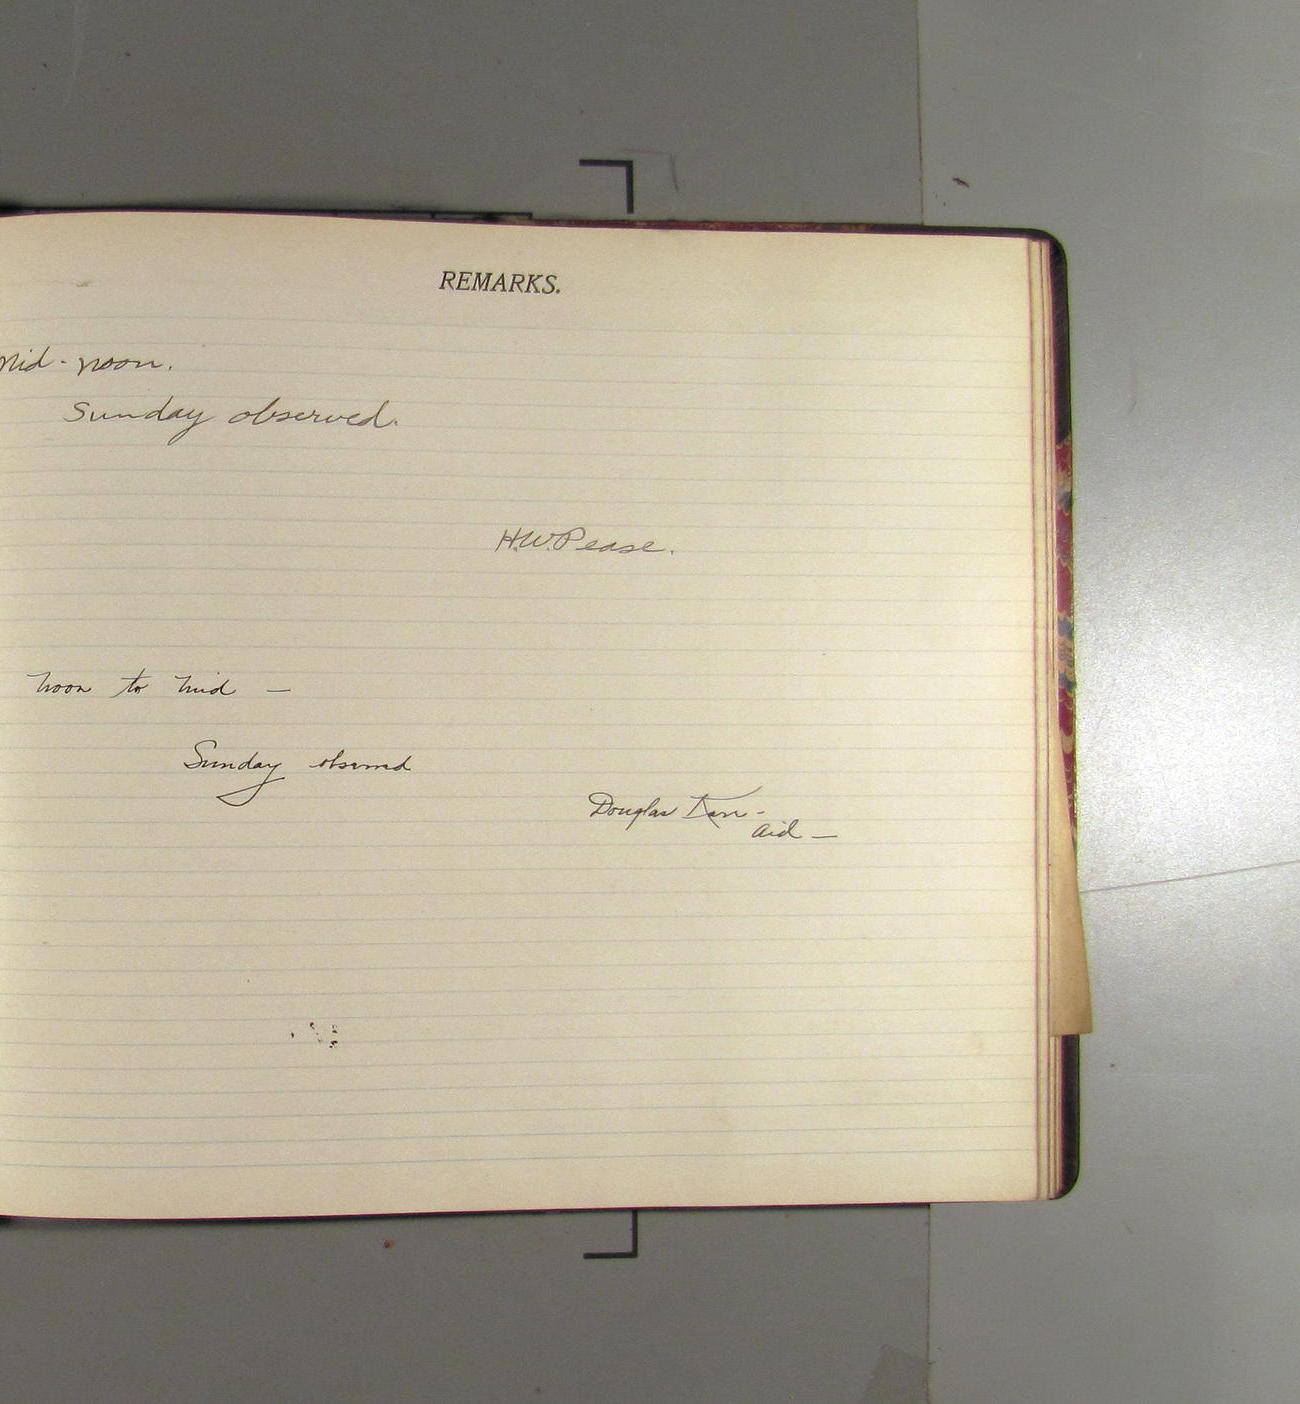 REMARKS.
Mid-noon.
Sunday observed.
H.W. Pease.
Noon to mid —
Sunday observed
Douglas Karr -
aid —